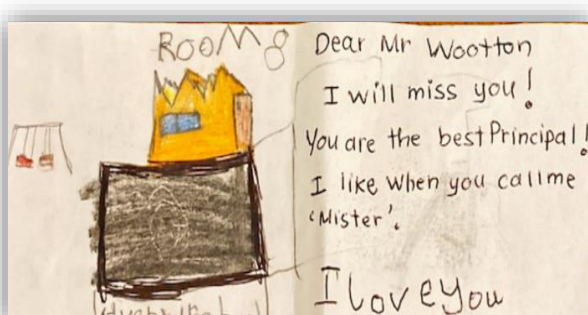 ROOM 8
Dear Mr Wootton
I will miss you!
You are the best Principal!
I like when you call me
'Mister'.
I love you